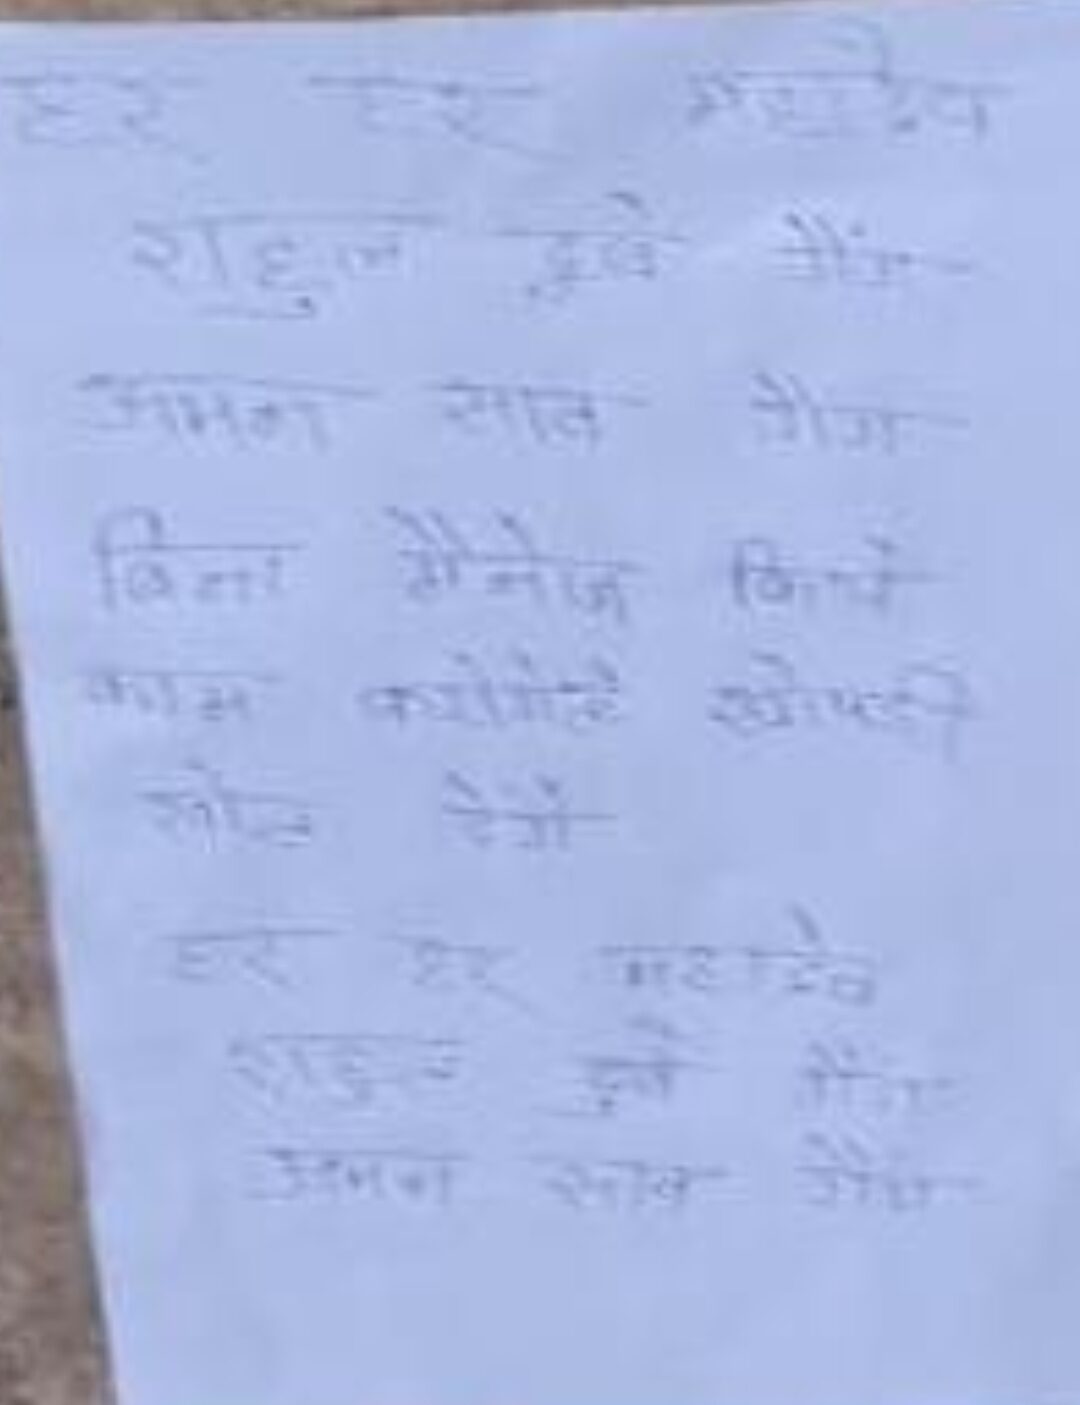 हर हर महादेव
राहुल दुबे गैंग
अमन साव गैंग
बिना मैनेज किये
काम करोगे तो खोपड़ी
खोल देंगे
हर हर महादेव
राहुल दुबे गैंग
अमन साव गैंग